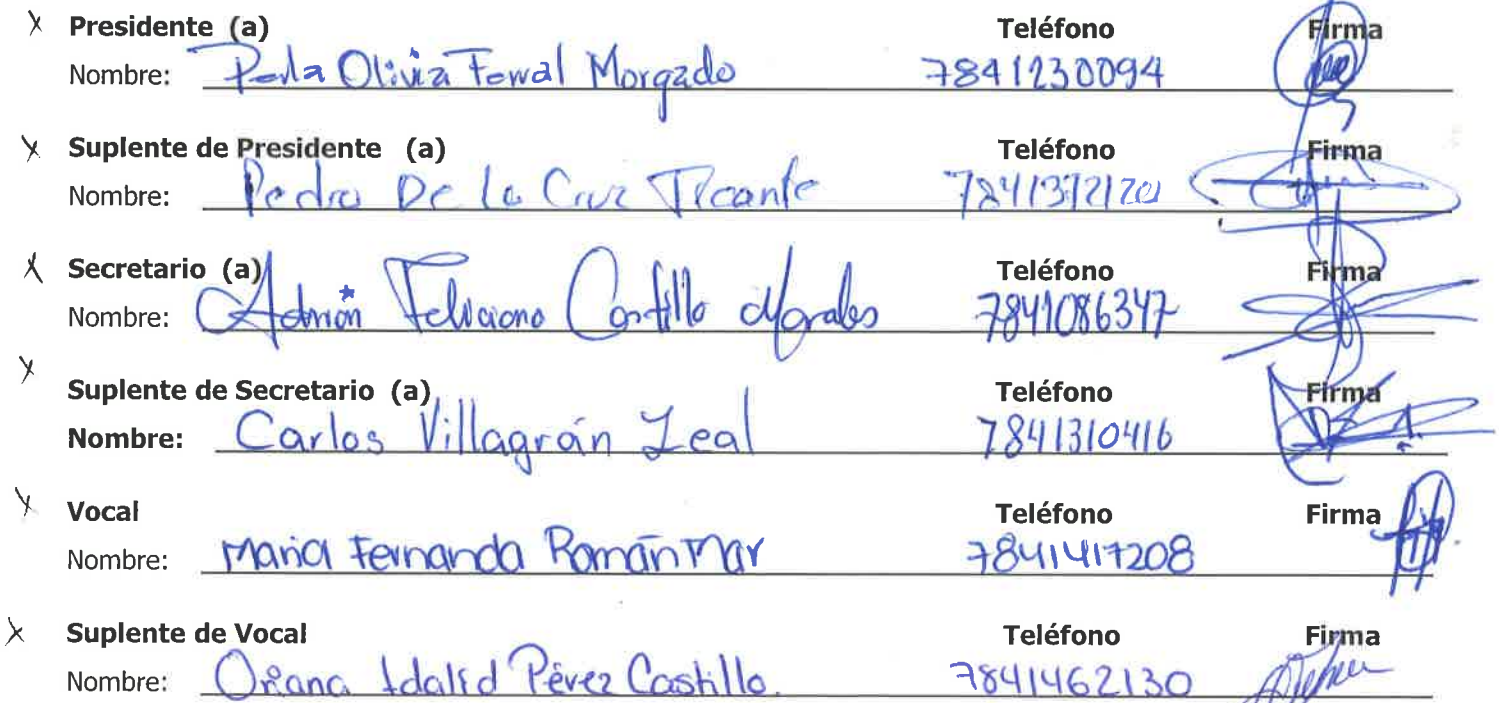 X Presidente (a) Teléfono Firma
Nombre: Perla Olivia Ferral Morgado 7841230094
X Suplente de Presidente (a) Teléfono Firma
Nombre: Pedro De la Cruz
X Secretario (a) Teléfono Firma
Nombre: Adrián Feliciano Castillo Morales 7841086347
X Suplente de Secretario (a) Teléfono Firma
Nombre: Carlos Villagrán Leal 7841310416
X Vocal Teléfono Firma
Nombre: Maria Fernanda Román Mar 7841417208
X Suplente de Vocal Teléfono Firma
Nombre: Oriana Idalid Pérez Castillo. 7841462130